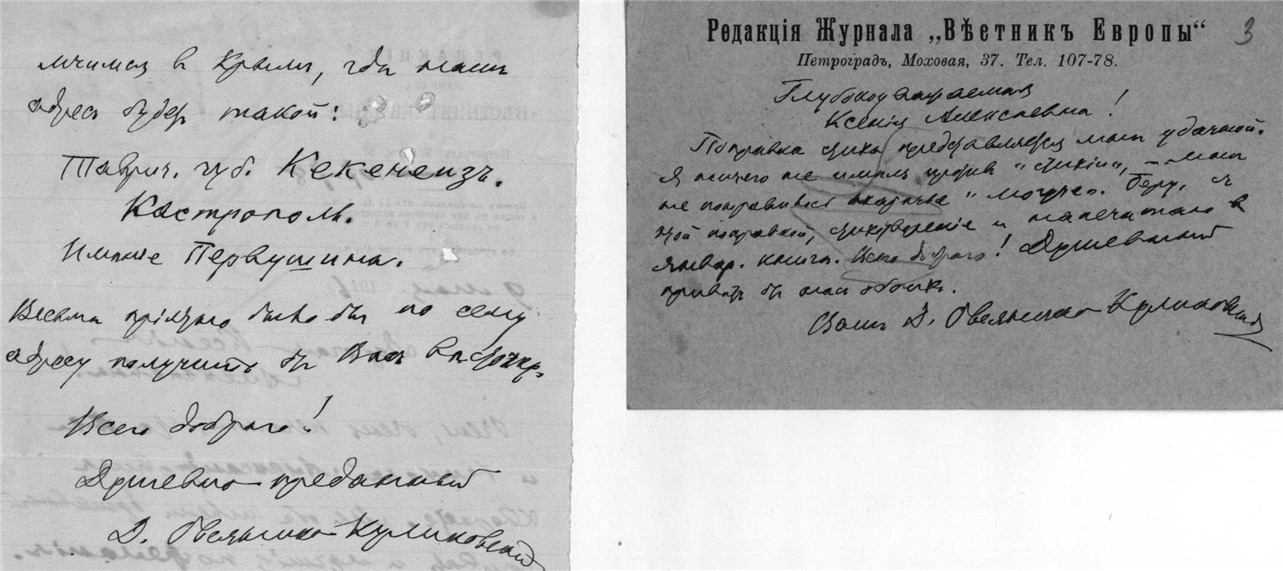 мчимся в Крым, где наш
адрес будет такой:
Таврич. губ. Кекенеизъ.
Кастрополь.
Имѣніе Первушина.
Весьма пріятно было бы по сему
адресу получить отъ Васъ
Всего добраго!
Душевно преданный
Д. Овсянико-Куликовский
Редакція Журнала „Вѣстникъ Европы“
3
Петроградъ, Моховая, 37. Тел. 107-78.
Глубокоуважаемая
Ксенія Алексѣевна!
Поправка представляется мнѣ удачной.
Я ничего не имѣлъ противъ – мнѣ
не понравилось Беру, съ
этой поправкой, и напечатаю в
январ. книгѣ. Всего добраго! Душевный
привѣтъ отъ насъ обоихъ.
Вашъ Д. Овсянико-Куликовский